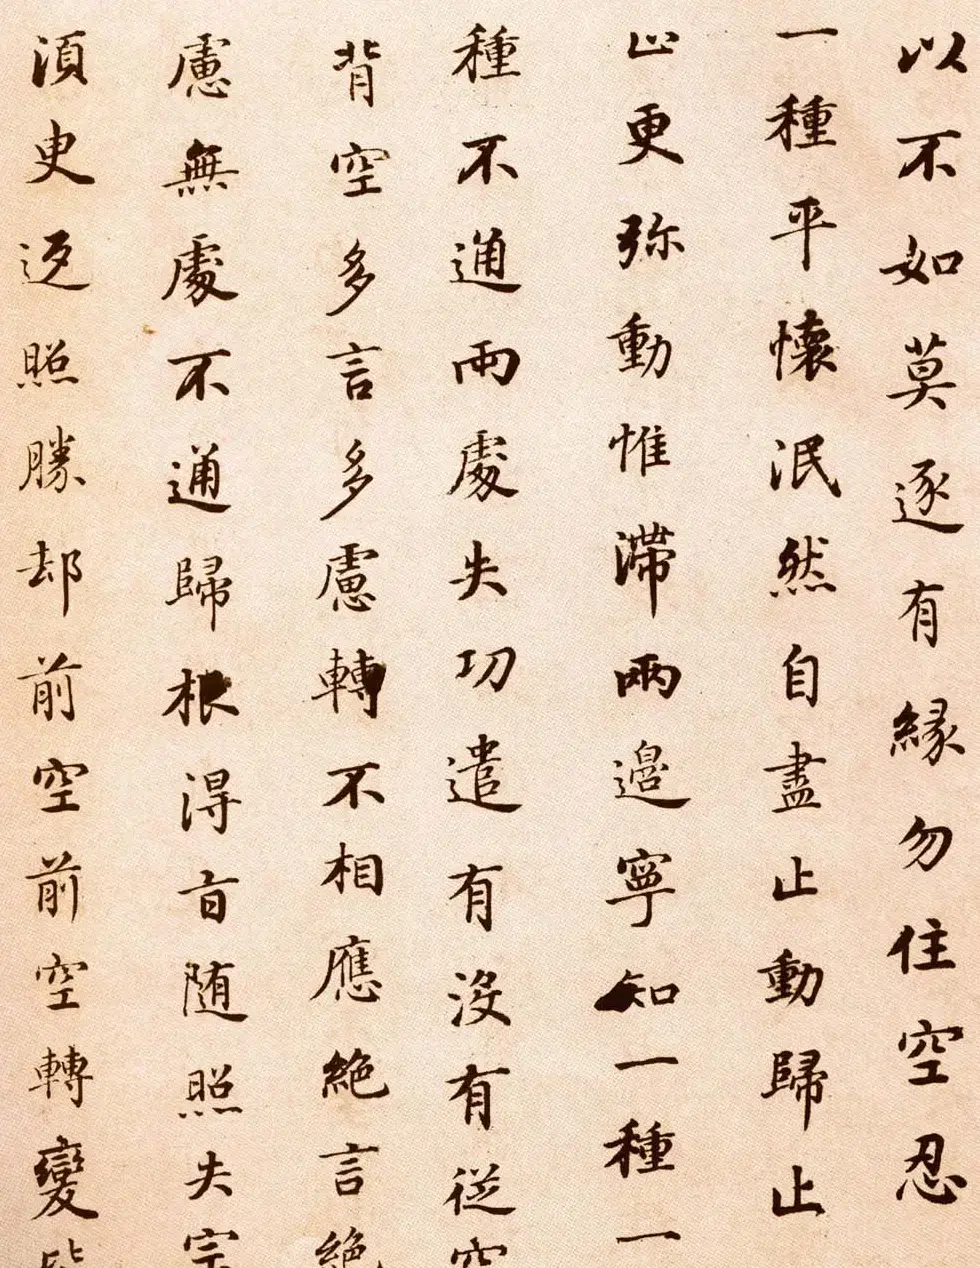 以不如莫逐有緣勿住空忍
一種平懷泯然自盡止動歸止
止更弥動惟滯兩邊寧知一種一
種不通兩處失功遣有沒有従空
背空多言多慮轉不相應絶言絶
慮無處不通歸根得旨随照失宗
須臾返照勝却前空前空轉變皆